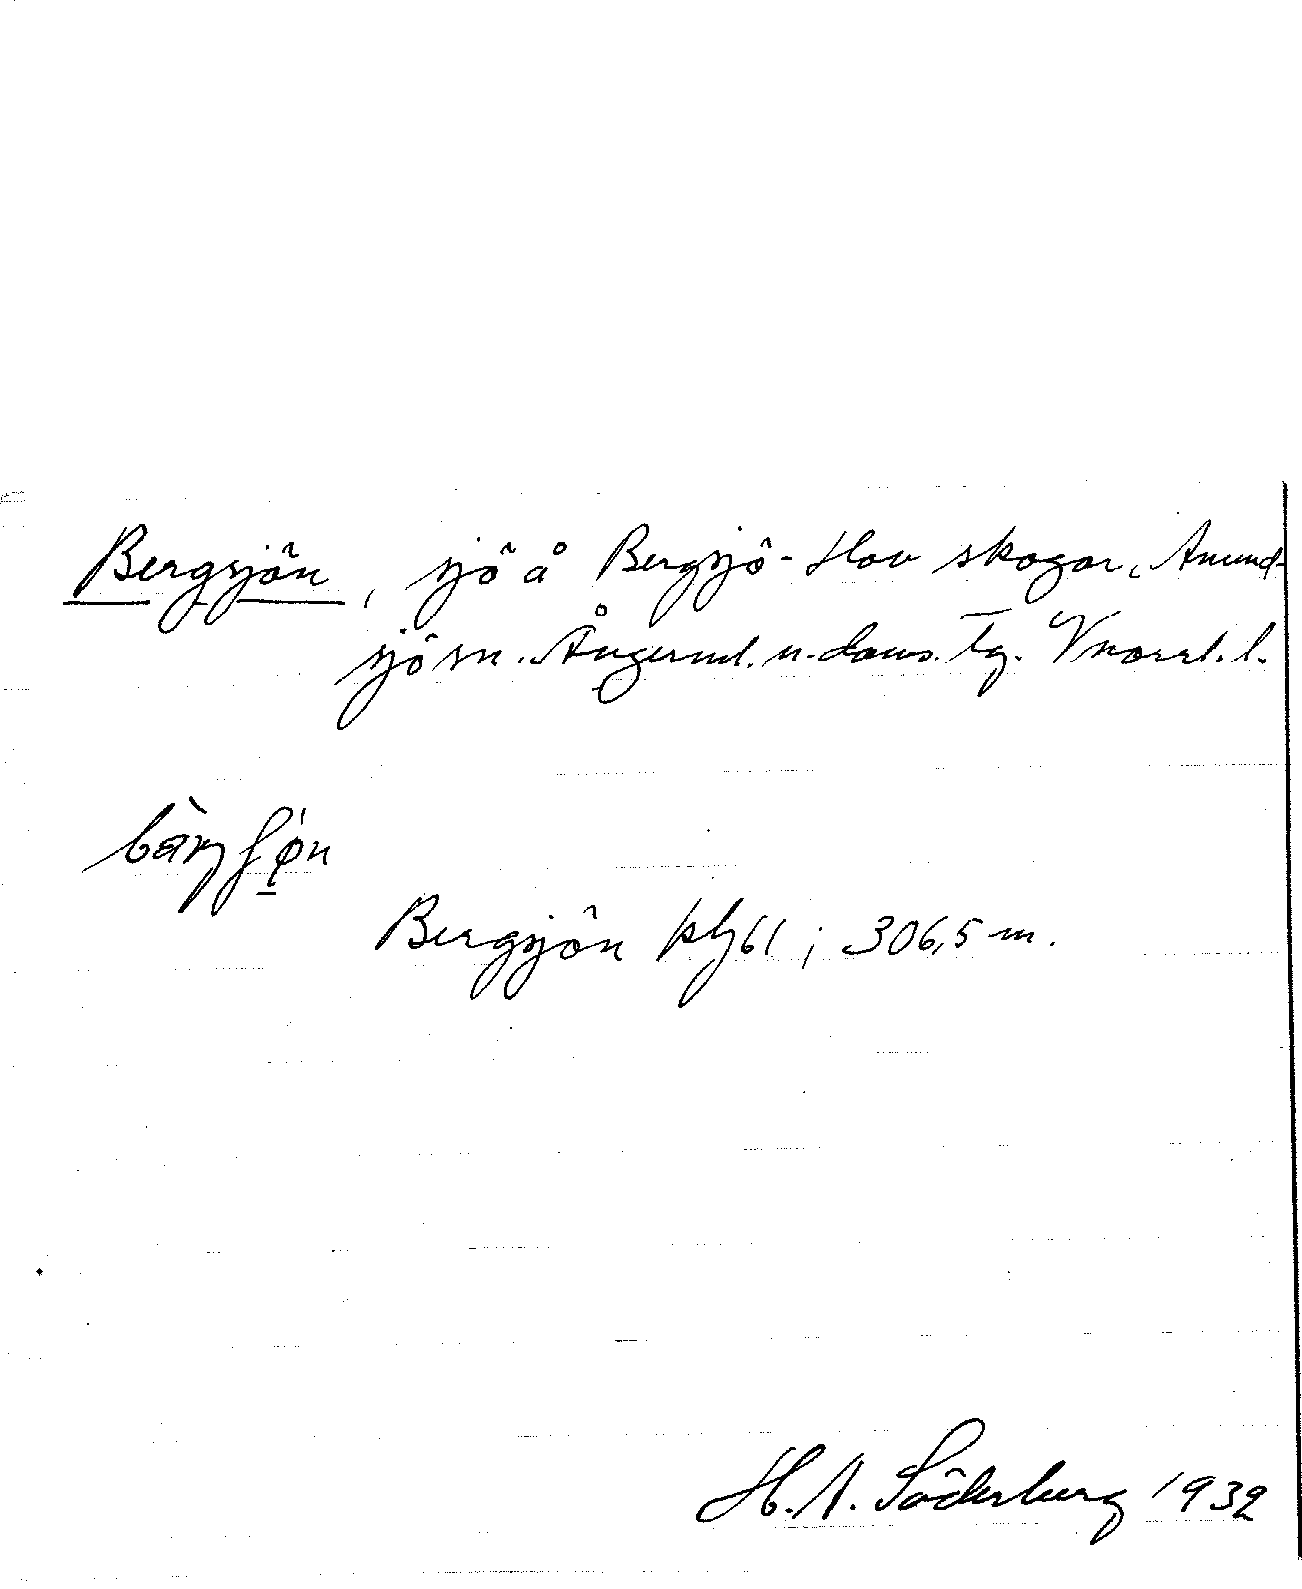 Bergsjön, sjö å Bergsjö-Hov skogar, Anund-
sjö sn. Ångerml. n. doms. Tg. Vnorrl. l.
Bergsjön kbl 61; 306,5 m.
H. A. Söderberg 1932